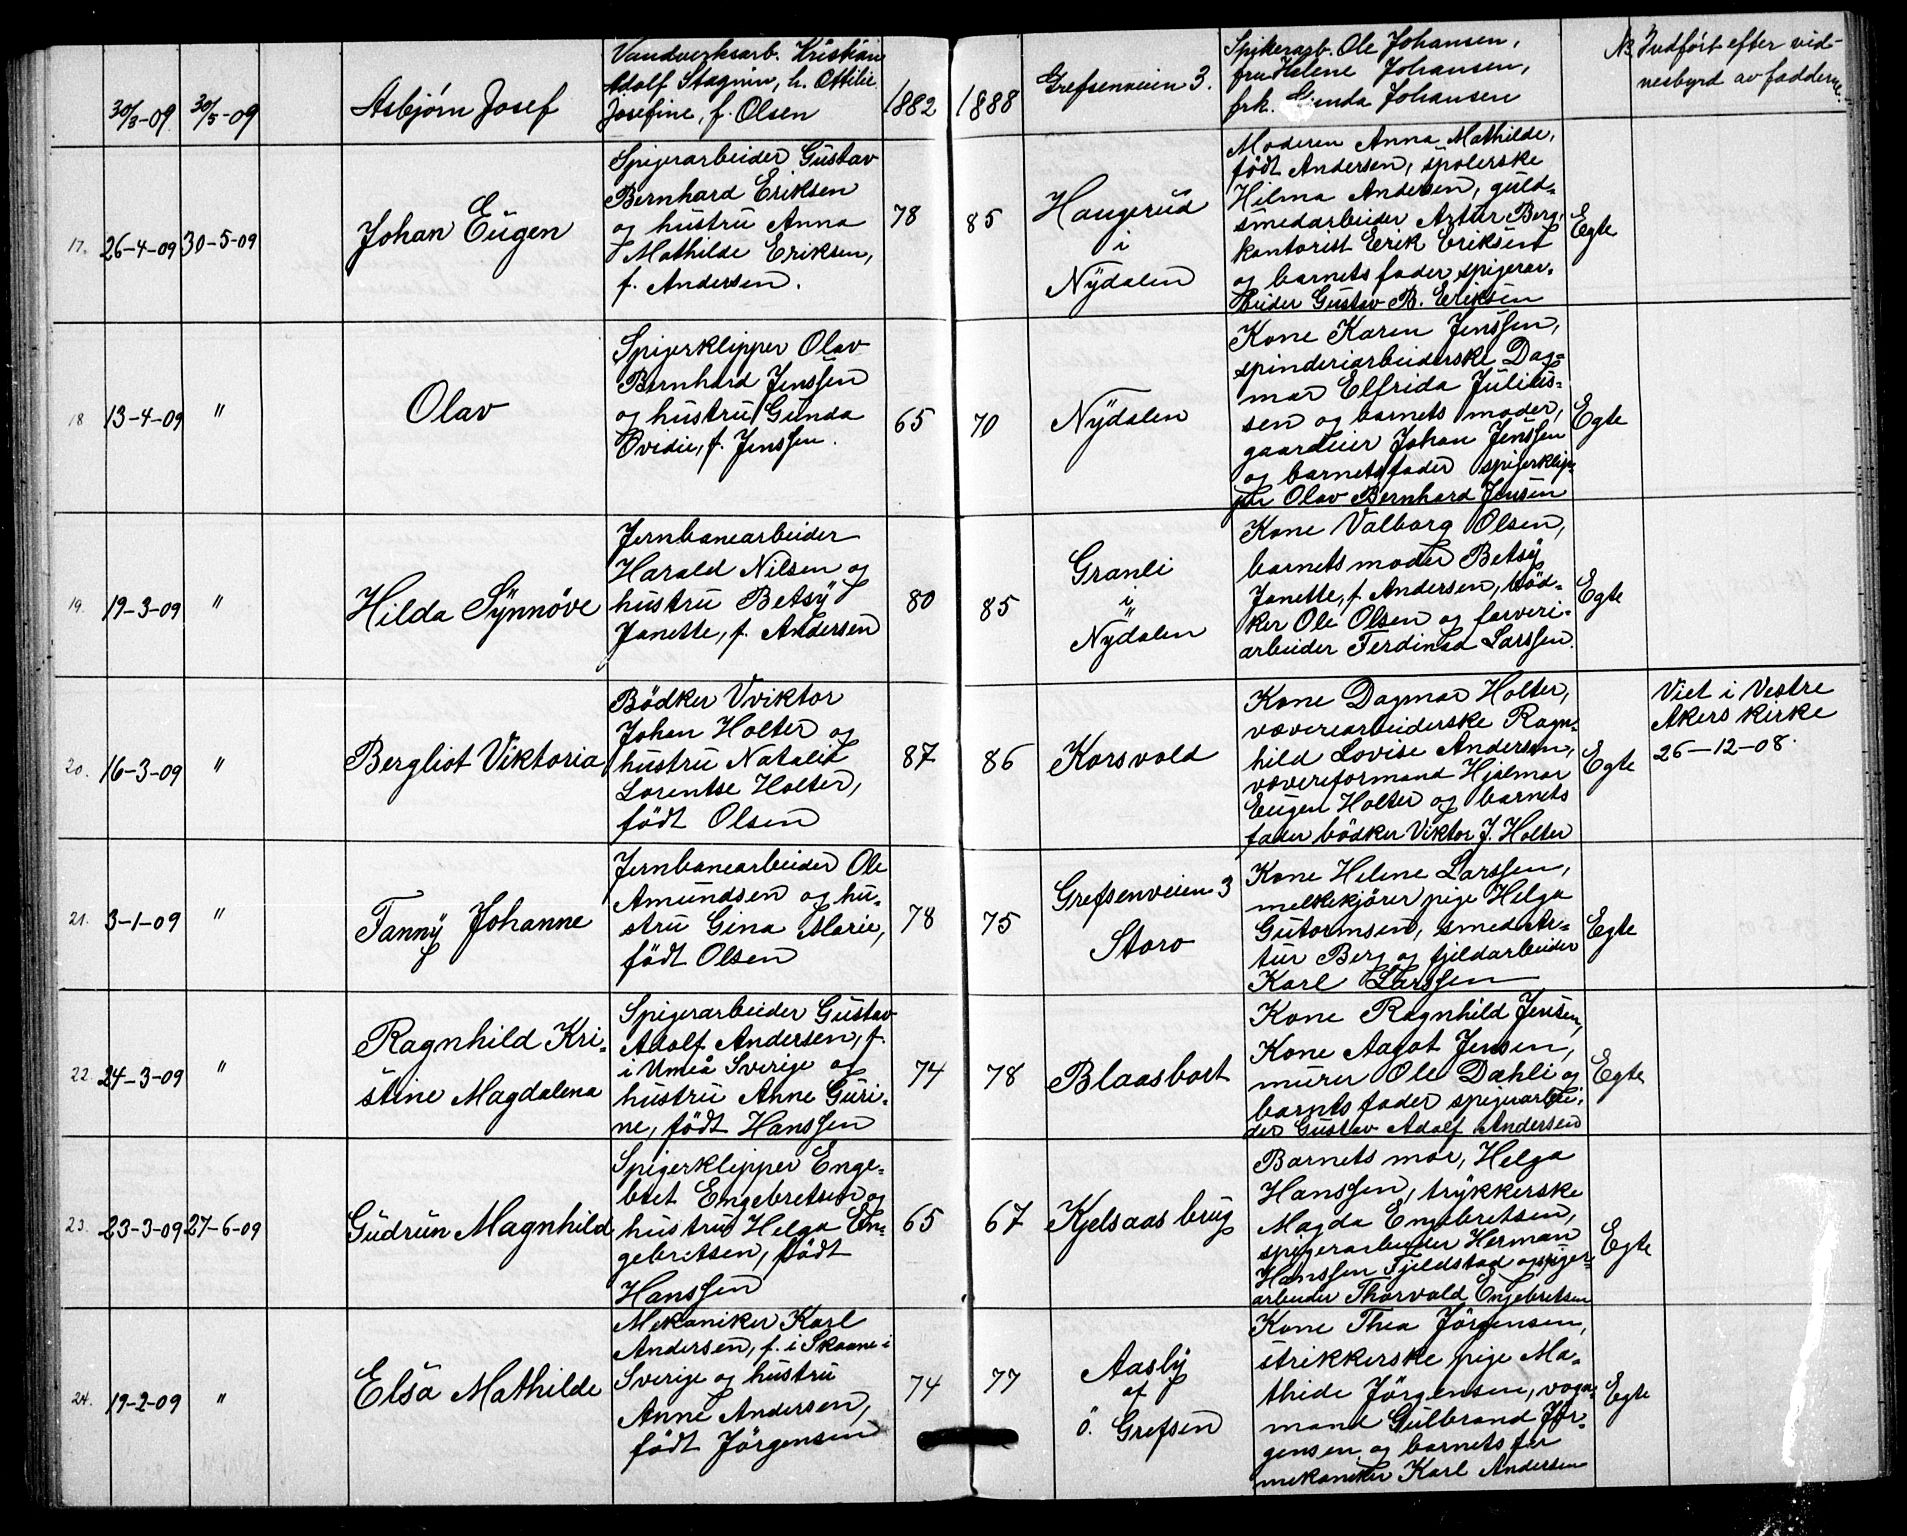 30/3-09
30/5-09
Asbjørn Josef
Vandverksarb. Kristian
Adolf Stagnin, h. Ottilie
Josefine, f. Olsen
1882
1888
Grefsenveien 3.
Spikerarb. Ole Johansen,
fru Helene Johansen,
frk. Gunda Johansen
NB. Indført efter vid-
nesbyrd av fadderne.
17.
26-4-09
30-5-09
Johan Eugen
Spigerarbeider Gustav
Bernhard Eriksen
og hustru Anna
Mathilde Eriksen,
f. Andersen.
78
85
Haugerud
i
Nydalen
Moderen Anna Mathilde,
født Andersen, spolerske
Hilma Andersen, guld=
smedarbeider Artur Berg,
kontorist Erik Eriksen
og barnets fader spigerar-
beider Gustav B. Eriksen
Egte
18
13-4-09
"
Olav
Spigerklipper Olav
Bernhard Jenssen
og hustru Gunda
Ovedie, f. Jenssen.
65
70
Nydalen
Kone Karen Jenssen,
spinderiarbeiderske Dag=
mar Elfrida Julius-
sen og barnets moder,
gaardeier Johan Jenssen
og barnets fader spigerklip=
per Olav Bernhard Jensen
Egte
19.
19-3-09
"
Hilda Synnøve
Jernbanearbeider
Harald Nilsen og
hustru Betsy
Janette, f. Andersen
80
85
Granli
i
Nydalen
Kone Valborg Olsen,
barnets moder Betsy
Janette, f. Andersen, bød-
ker Ole Olsen og farveri-
arbeider Ferdinad Larssen.
Egte
20.
16-3-09
"
Bergliot Viktoria
Bödker Vviktor
Johan Holter og
hustru Natalie
Lorentse Holter,
født Olsen
87
86
Korsvold
Kone Dagmar Holter,
væveriarbeiderske Ragn=
hild Lovise Andersen,
væveriformand Hjalmar
Eugen Holter og barnets
fader bödker Viktor J. Holter
Egte
Viet i Vestre
Akers kirke
26-12-08.
21.
3-1-09
"
Fanny Johanne
Jernbanearbeider Ole
Amundsen og hu-
stru Gina Marie,
født Olsen
78
75
Grefsenveien 3
Storo
Kone Helene Larssen,
melkekjører pige Helga
Gutormsen, smed Ar-
tur Berg og fjeldarbeider
Karl Larssen
Egte
22.
24-3-09
"
Ragnhild Kri-
stine Magdalena
Spigerarbeider Gustav
Adolf Andersen, f.
i Umeå Sverige og
hustru Anne Guri-
ne, født Hanssen
74
78
Blaasbort
Kone Ragnhild Jensen,
Kone Aagot Jensen,
murer Ole Dæhli og
barnets fader spigerarbei-
der Gustav Adolf Andersen
Egte
23.
23-3-09
27-6-09
Gudrun Magnhild
Spigerklipper Enge-
bret Engebretsen og
hustru Helga En=
gebretsen, født
Hanssen
65
67
Kjelsaas brug
Barnets mor, Helga
Hanssen, trykkerske
Magda Engebretsen,
spigerarbeider Herman
Hanssen Fjeldstad og spiger=
arbeider Thorvald Engebretsen
Egte
24.
19-2-09
"
Elsa Mathilde
Mekaniker Karl
Andersen, f. i Skaane i
Sverige og hustru
Anne Andersen,
født Jörgensen
74
77
Aasby
af
ö. Grefsen
Kone Thea Jörgensen,
strikkerske pige Ma-
thide Jörgensen, vogn=
mand Gulbrand Jör-
gensen og barnets far
mekaniker Karl Andersen
Egte